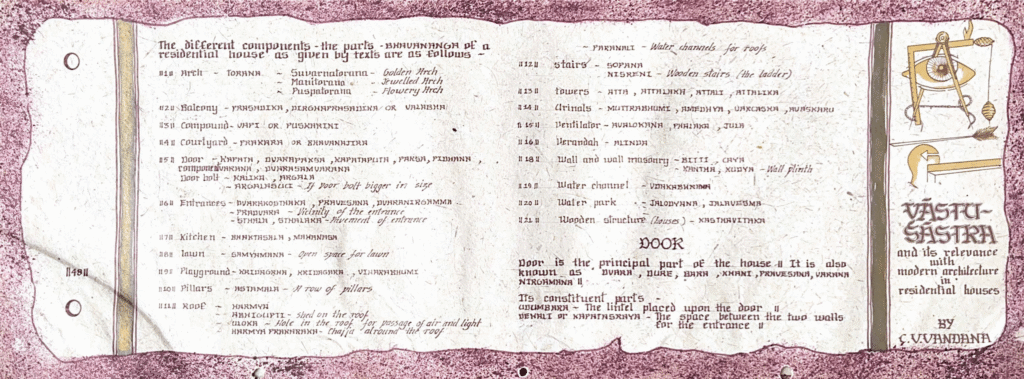 The different components - the parts - BHAVANANGA of a
residential house as given by texts are as follows -
॥1॥ Arch - TORANA - Suvarnatorana - Golden Arch
Manitorana - Jewelled Arch
Puspatorana - Flowery Arch
॥2॥ Balcony - PRASADIKA, DIRGHAPRASADIKA OR VALABHA
॥3॥ Compound - VAPI OR PUSKARINI
॥4॥ Courtyard - PRAKARA OR BHAVANAJIRA
॥5॥ Door - KAPATA, DVARAPAKSA, KAPATAPUTA, PAKSA, PIDHANA,
component VARANA, DVARASAMVARANA
Door bolt - KALIKA, ARGALA
ARGALABHUI - If Door bolt bigger in size
॥6॥ Entrances - DVARAKOTHAKA, PRAVESANA, DVARANIRGAMMA
PRADVARA - Vicinity of the entrance
STHALA, STHALAKA - Pavement of entrance
॥7॥ Kitchen - BHAKTASALA, MAHANASA
॥8॥ lawn - SAMYAMANA - Open space for lawn
॥9॥ Playground - KRIDAGHNA, KRIDAGARA, VIHARABHUMI
॥10॥ Pillars - ASTAMALA - A row of pillars
॥11॥ Roof - HARMYA
HANIGUPTI - shed on the roof
ULOKA - Hole in the roof for passage of air and light
HARMYA PRAKARAKA - Chajja around the roof
॥48॥
PRANALI - Water channels for roofs
॥12॥ stairs - SOPANA
NISRENI - Wooden stairs (the ladder)
॥13॥ towers - ATTA, ATTALAKA, ATTALI, ATTALIKA
॥14॥ Urinals - MUTTRABHUMI, AMEDHYA, VARCASKA, AVASKARU
॥15॥ Ventilator - AVALOKANA, PHALAKA, JULA
॥16॥ Verandah - ALINDA
॥18॥ Wall and wall masonary - BITTI, CAYA
KANTHA, KUDYA - Wall plinth
॥19॥ Water channel - UDAKABHRAMA
॥20॥ Water park - JALODYANA, JALAVESMA
॥21॥ Wooden structure (houses) - KASTHAVITAKA
DOOR
Door is the principal part of the house ॥ It is also
known as DVARA, DURE, BARA, KHANI, PRAVESANA, VARANA
NIRGAMANA ॥
Its constituent parts -
UDUMBARA - The lintel placed upon the door ॥
DEHALI OF KAPATASRAYA - The space between the two walls
for the entrance ॥
VĀSTU-
SĀSTRA
and its relevance
with
modern architecture
in
residential houses
BY
C.V.VANDANA